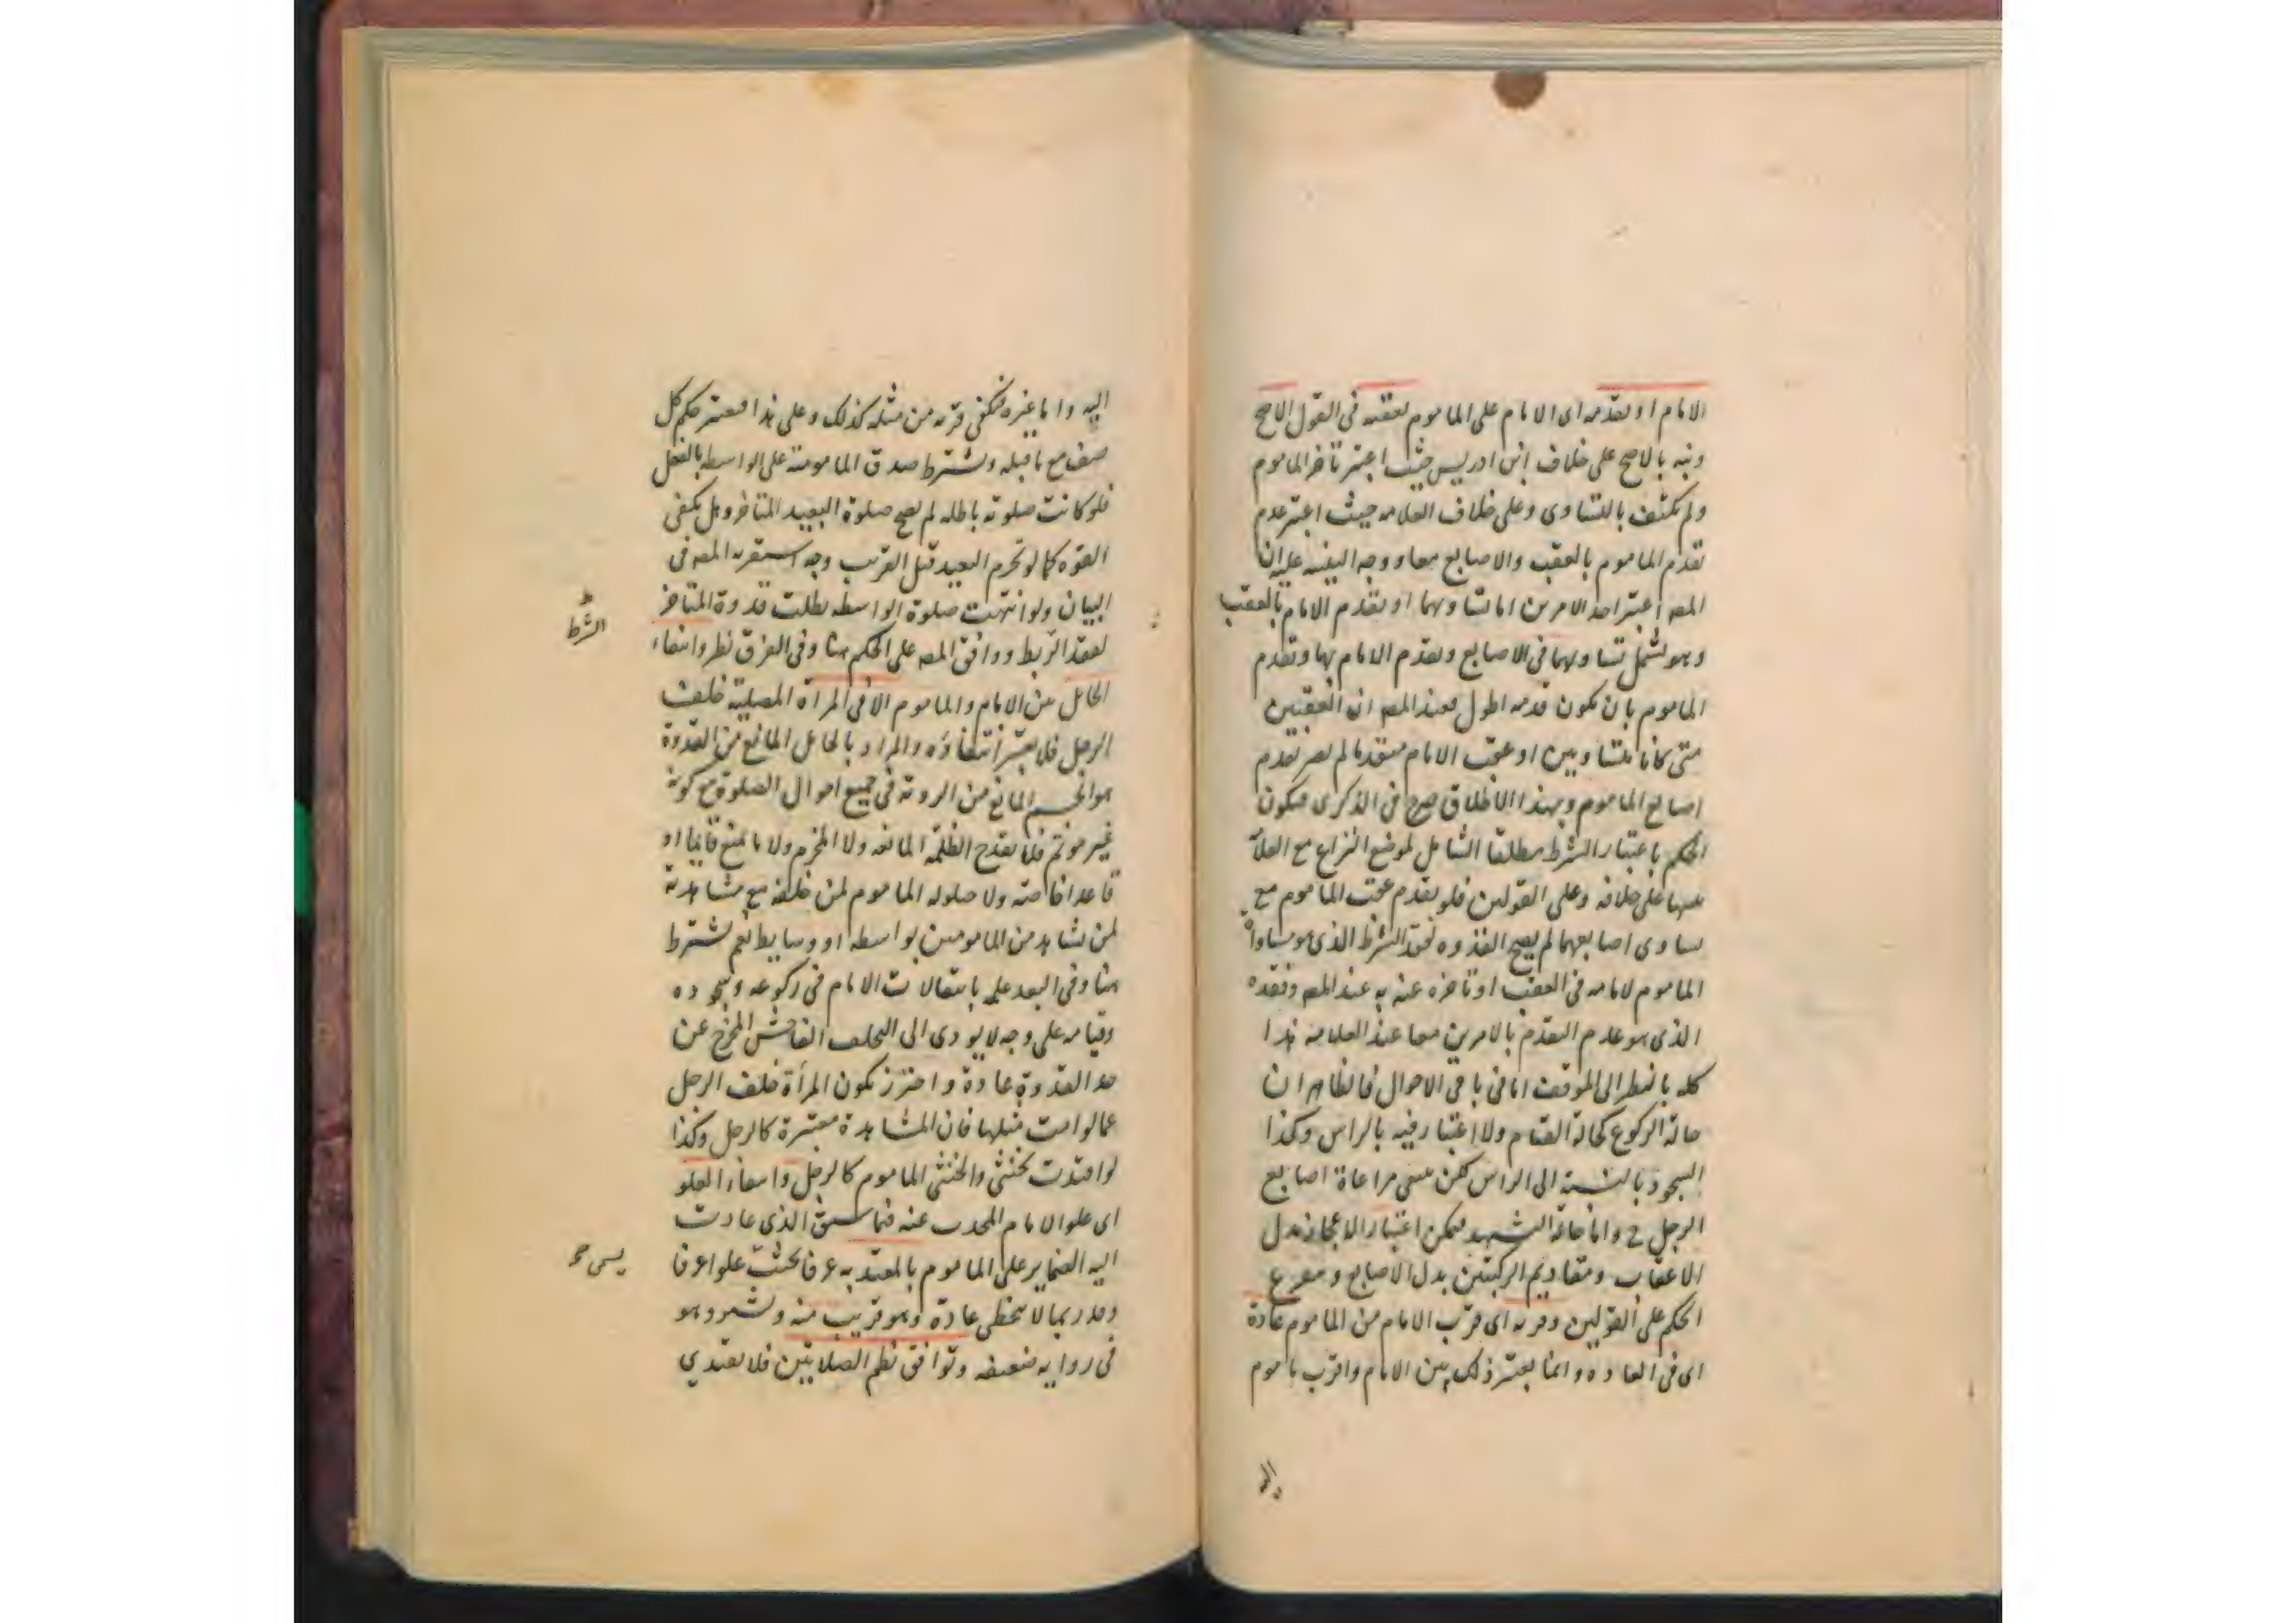 الامام او تقدمه اى الامام على الماموم بعقبه فى القول الاصح
ونبه بالاصح على خلاف ابن ادريس حيث اعتبر تاخر الماموم
ولم يكتف بالتساوى وعلى خلاف العلامه حيث اعتبر عدم
تقدم الماموم بالعقب والاصابع معا ووجه التنبيه عليه ان
المصه اعتبر احد الامرين اما تساويهما او تقدم الامام بالعقب
وهو يشمل تساويهما فى الاصابع وتقدم الامام بها وتقدم
الماموم بان يكون قدمه اطول فعند المصه ان العقبين
متى كانا متساويين او عقب الامام متقدما لم يضر تقدم
اصابع الماموم وبهذا الاطلاق صرح فى الذكرى فيكون
الحكم باعتبار الشرط مطلقا الشامل لموضع النزاع مع العلا
منبها على خلافه وعلى القولين فلو تقدم عقب الماموم مع
تساوى اصابعهما لم يصح القدوه لفقد الشرط الذى هو مساواة
الماموم لامامه فى العقب او تاخره عنه به عند المصه وفقده
الذى هو عدم التقدم بالامرين معا عند العلامه هذا
كله بالنظر الى الموقف اما فى باقى الاحوال فالظاهر ان
حالة الركوع كحالة القيام ولا اعتبار فيه بالراس وكذا
السجود بالنسبة الى الراس لكن ينبغى مراعاة اصابع
الرجل ح واما حالة التشهد فيمكن اعتبار الاعجاز بدل
الاعقاب ومقاديم الركبتين بدل الاصابع و
الحكم على القولين وقربه اى قرب الامام من الماموم عادة
اى فى العاده وانما يعتبر ذلك بين الامام واقرب ماموم
اليه
اليه واما غيره فيكفى قربه من مثله كذلك وعلى هذا فيعتبر حكم كل
صف مع ما قبله ويشترط صدق المامومية على الواسطه بالفعل
فلو كانت صلوته باطله لم يصح صلوة البعيد المتاخر وهل يكفى
القوه كما لو تحرم البعيد قبل القريب وجه استقربه المصه فى
البيان ولو انتهت صلوة الواسطه بطلت قدوة المتاخر
لفقد الربط ووافق المصه على الحكم هنا وفى الفرق نظر وانتفاء
الشرط
الحائل بين الامام والماموم الا فى المراة المصلية خلف
الرجل فلا يعتبر انتفاؤه والمراد بالحايل المانع من القدوة
هو الجسم المانع من الروية فى جميع احوال الصلوة مع كونه
غير موتم فلا يقدح الظلمة المانعه ولا المخرم ولا ما يمنع قايما او
قاعدا خاصه ولا حيلوله الماموم لمن خلفه مع مشاهدته
لمن يشاهد من المامومين بواسطه او وسايط نعم يشترط
هنا وفى البعد علمه بانتقالات الامام فى ركوعه وسجوده
وقيامه على وجه لا يودى الى التخلف الفاحش المخرج عن
حد القدوة عادة واحترز بكون المرأة خلف الرجل
عما لو امت مثلها فان المشاهدة معتبرة كالرجل وكذا
لو اقتدت بخنثى والخنثى الماموم كالرجل وانتفاء العلو
اى علو الامام المحدث عنه فيما سبق الذى عادت
اليه الضماير على الماموم بالمعتد به عرفا بحيث علوا عرفا
يسمى صح
وقدر بما لا يتخطى عادة وهو قريب منه وبشبر وهو
فى روايه ضعيفه وتوافق نظم الصلاتين فلا يقتدي